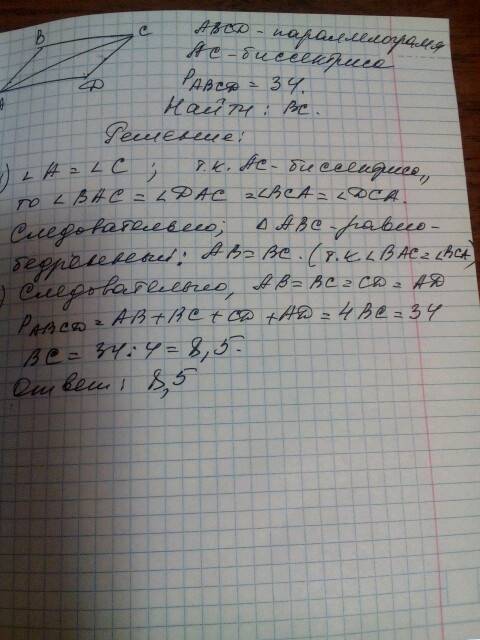 B
C
A
D
ABCD - параллелограмм
AC - биссектриса
P ABCD = 34.
Найти: BC.
Решение:
) ∠A = ∠C ; т.к. AC - биссектриса,
то ∠BAC = ∠DAC = ∠BCA = ∠DCA.
Следовательно; △ABC - равно-
бедренный: AB = BC. (т.к. ∠BAC = ∠BCA)
) Следовательно, AB = BC = CD = AD
P ABCD = AB + BC + CD + AD = 4BC = 34
BC = 34 : 4 = 8,5.
Ответ: 8,5